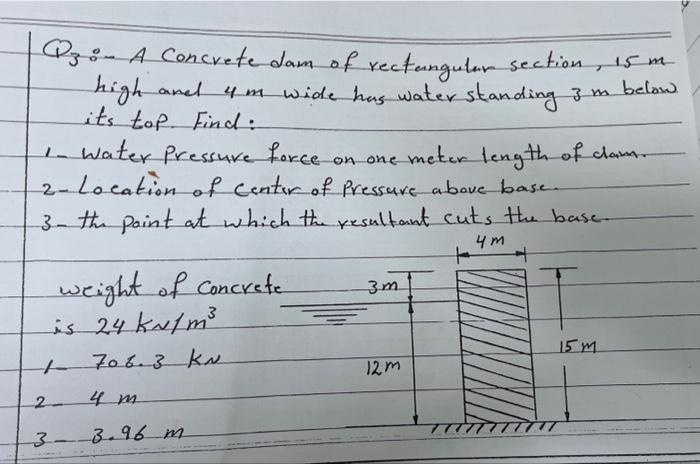 Q3:- A Concrete dam of rectangular section, 15 m
high and 4 m wide has water standing 3 m below
its top. Find:
1- Water Pressure force on one meter length of dam.
2- Location of Center of Pressure above base.
3- the point at which the resultant cuts the base.
4 m
weight of Concrete
3m
is 24 kN/m³
15 m
1- 706.3 kN
12m
2- 4 m
3- 3.96 m